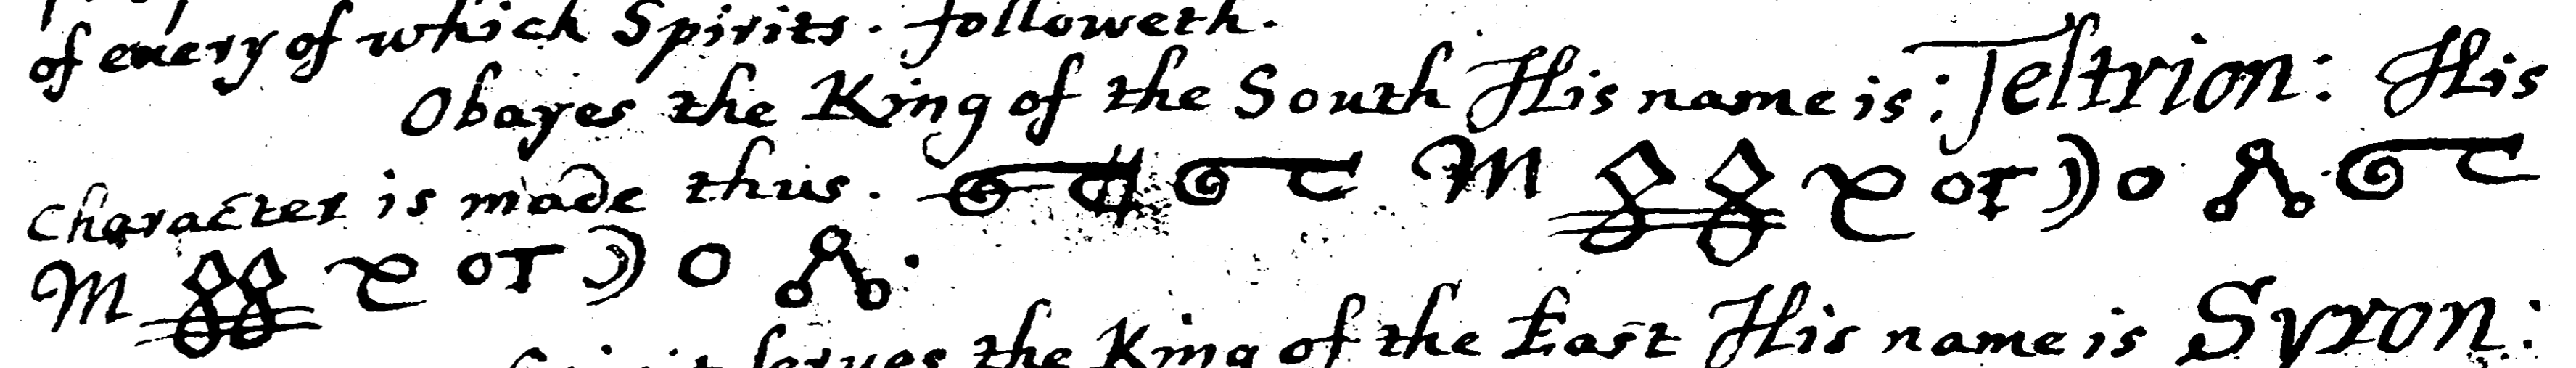 of euery of which Spirits. followeth.
Obayes the King of the South His name is: Teltrion: His
Character is made thus.
M
the King of the East His name is Syron: